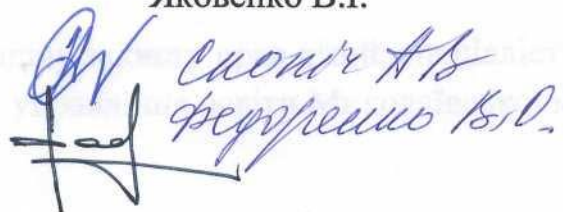 Яковенко В.І.
Скопіч А В
Федоренко В.О.